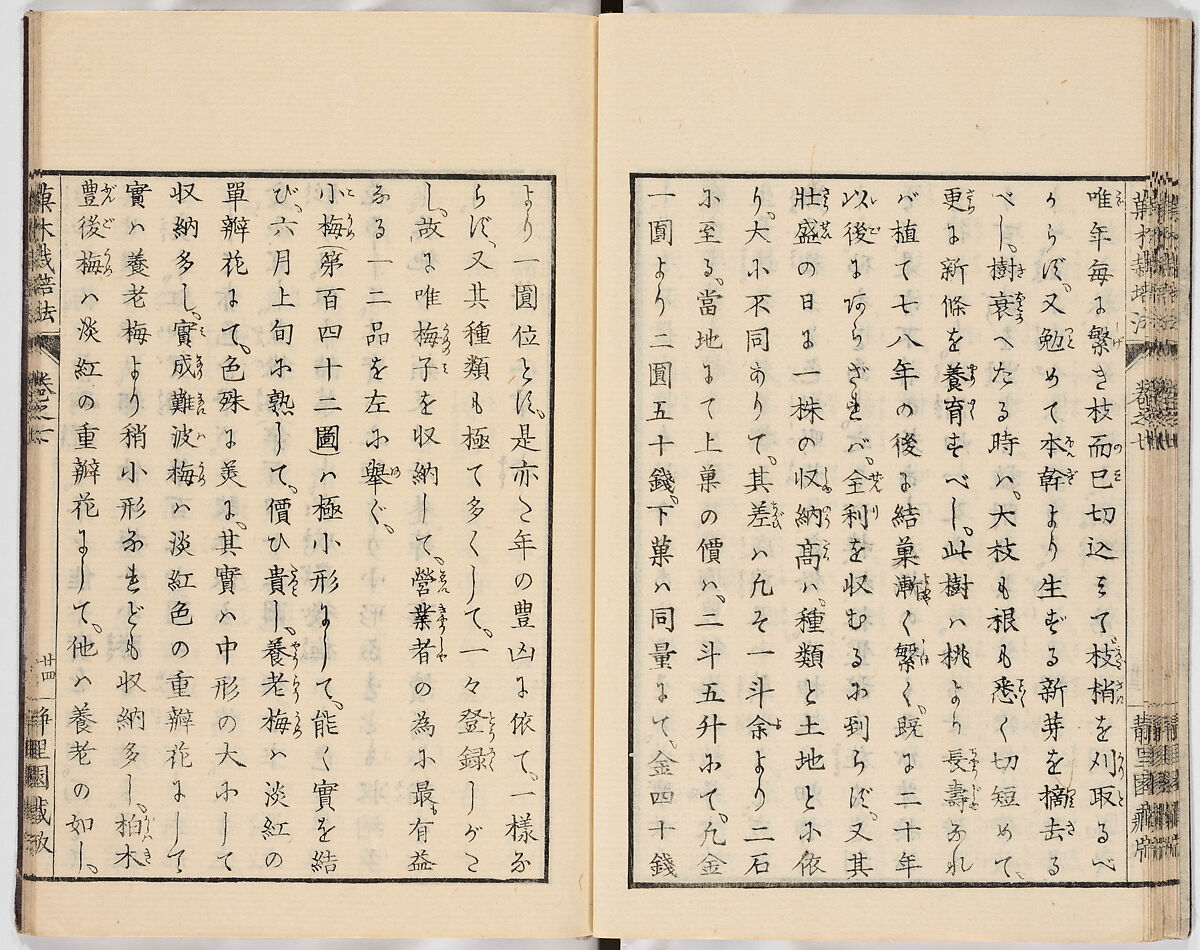 唯年毎に繁き枝而已切込ミて枝梢を刈取るべ
からず、又勉めて本幹より生ずる新芽を摘去る
べし、樹衰へたる時ハ、大枝も根も悉く切短めて、
更に新條を養育すべし、此樹ハ桃より長壽なれ
バ植て七八年の後に結菓漸く繁く、既に二十年
以後にあらざれバ、全利を収むるに到らず、又其
壯盛の日に一株の収納高ハ、種類と土地とに依
り、大小不同ありて、其差ハ凡そ一斗余より二石
に至る、當地にて上菓の價ハ、二斗五升にて、凡金
一圓より二圓五十錢、下菓ハ同量にて、金四十錢
菓木栽培法 巻之七
靜里園藏版
より一圓位とす、是亦た年の豊凶に依て、一樣な
らず、又其種類も極て多くして、一々登録しがた
し、故に唯梅子を収納して、營業者の為に最有益
なる一二品を左に擧ぐ、
小梅(第百四十二圖)ハ極小形にして、能く實を結
び、六月上旬に熟して、價ひ貴し、養老梅ハ淡紅の
單瓣花にて、色殊に美に、其實ハ中形の大にして
収納多し、實成難波梅ハ淡紅色の重瓣花にして
實ハ養老梅より稍小形なれども収納多し、柏木
豊後梅ハ淡紅の重瓣花にして、他ハ養老の如し、
菓木栽培法 巻之七
廿四 靜里園藏版